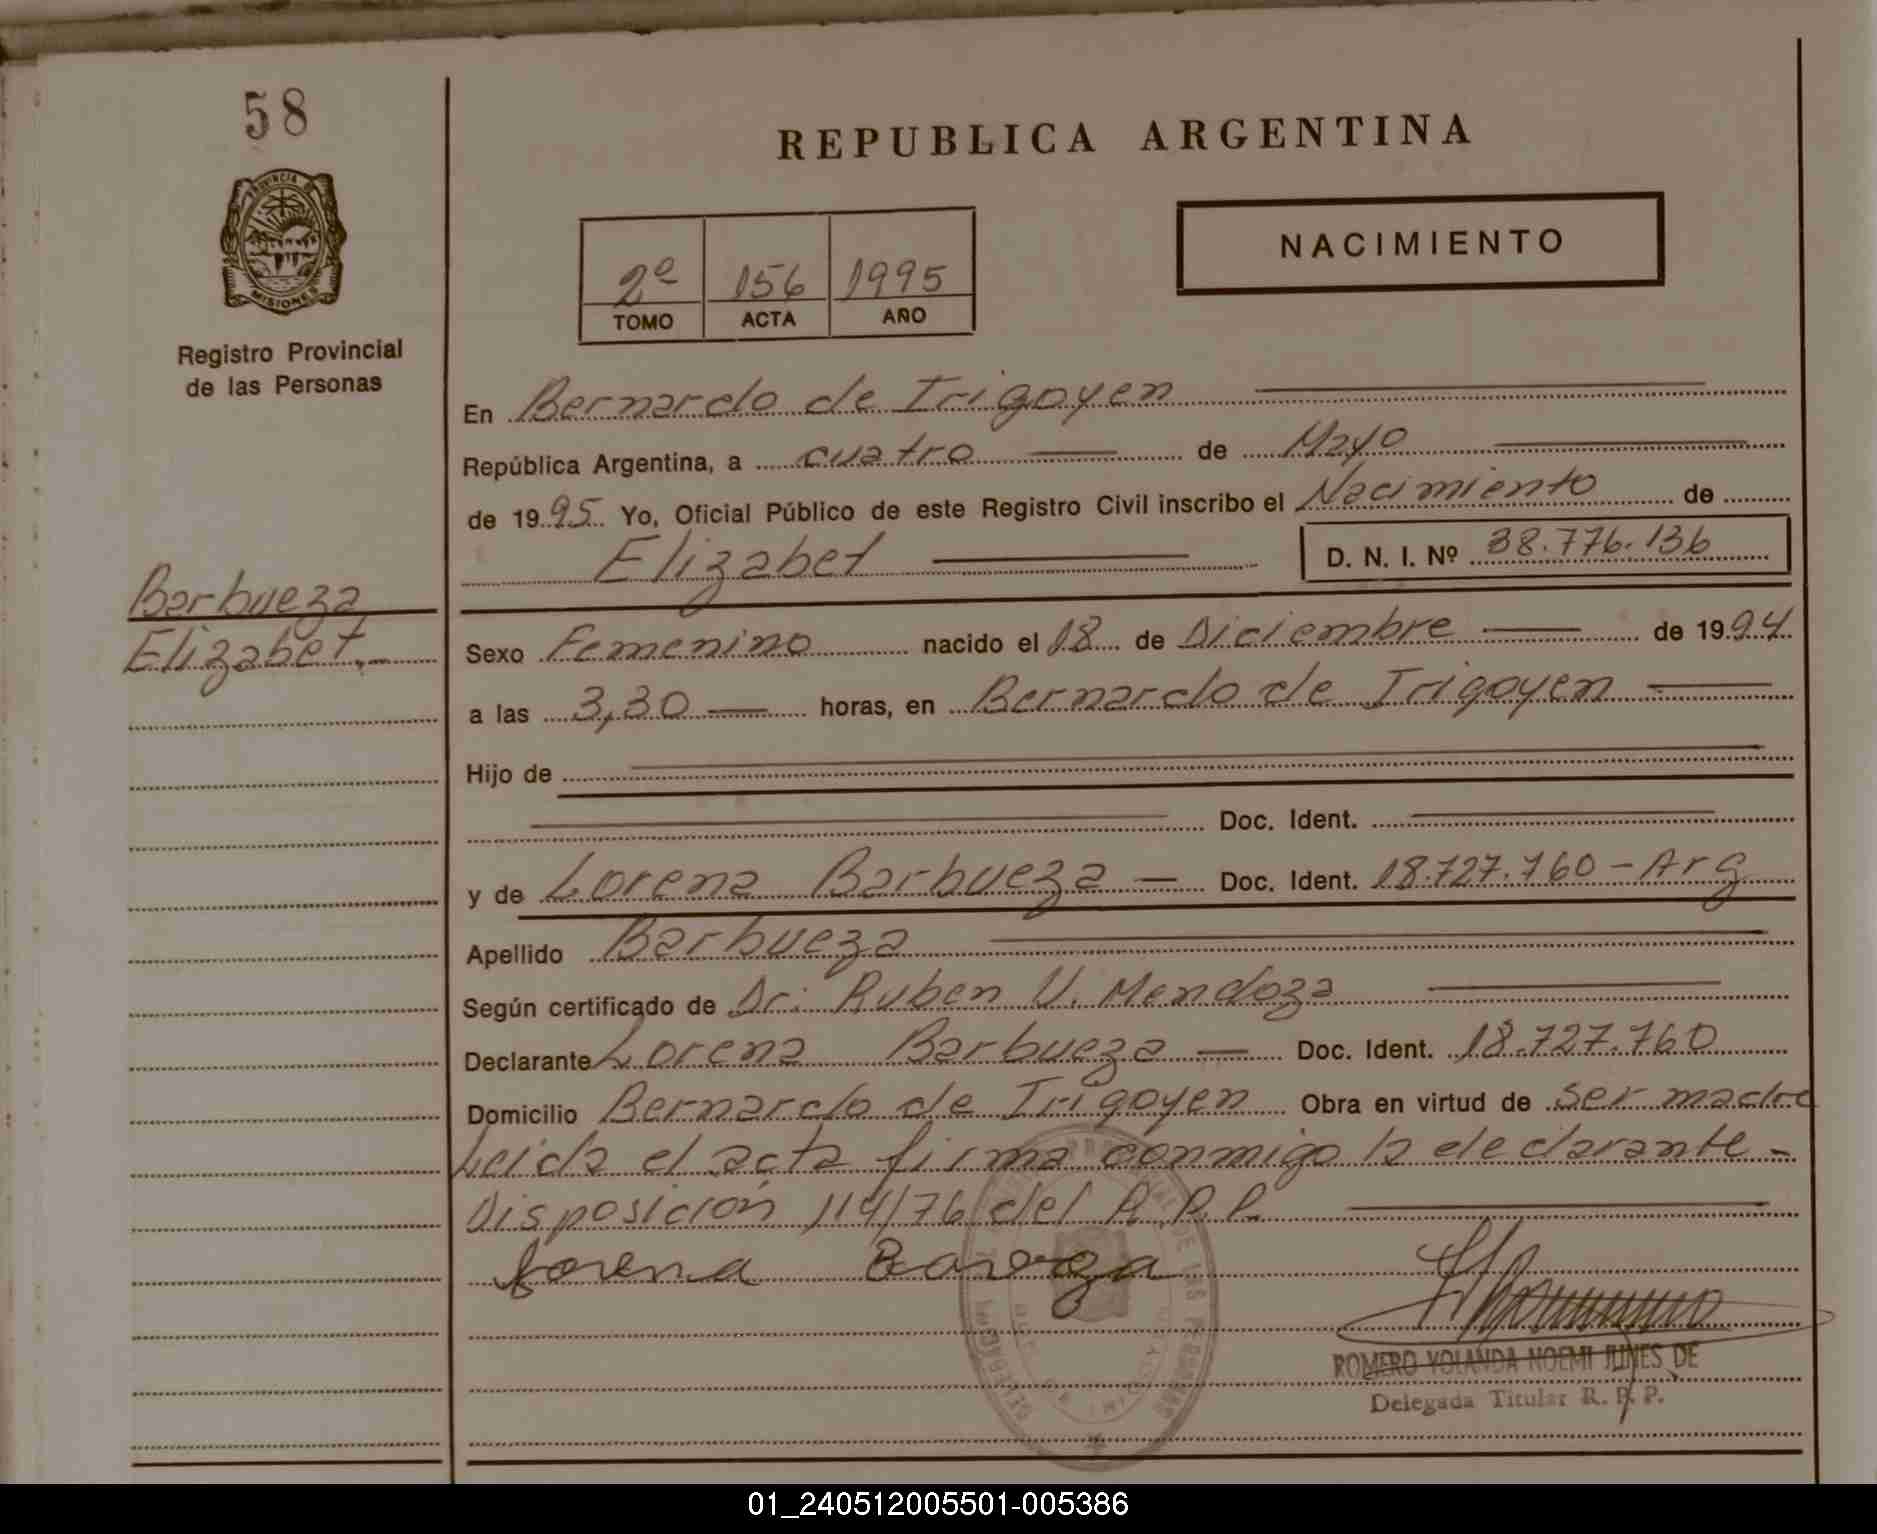 58
PROVINCIA DE
MISIONES
Registro Provincial
de las Personas
REPUBLICA ARGENTINA
NACIMIENTO
2º 156 1995
TOMO ACTA AÑO
En Bernardo de Irigoyen
República Argentina, a cuatro de Mayo
de 1995 Yo, Oficial Público de este Registro Civil inscribo el Nacimiento de
Elizabet D. N. I. Nº 38.776.136
Barbueza
Elizabet.-
Sexo Femenino nacido el 18 de Diciembre de 1994
a las 3,30 horas, en Bernardo de Irigoyen
Hijo de
Doc. Ident.
y de Lorena Barbueza Doc. Ident. 18.727.760 - Arg
Apellido Barbueza
Según certificado de Dr. Ruben V. Mendoza
Declarante Lorena Barbueza Doc. Ident. 18.727.760
Domicilio Bernardo de Irigoyen Obra en virtud de ser madre
Leida el acta firma conmigo la declarante -
Disposición 114/76 del R.P.P.
Lorena
ROMERO YOLANDA NOEMI JUNES DE
Delegada Titular R. P. P.
01_240512005501-005386